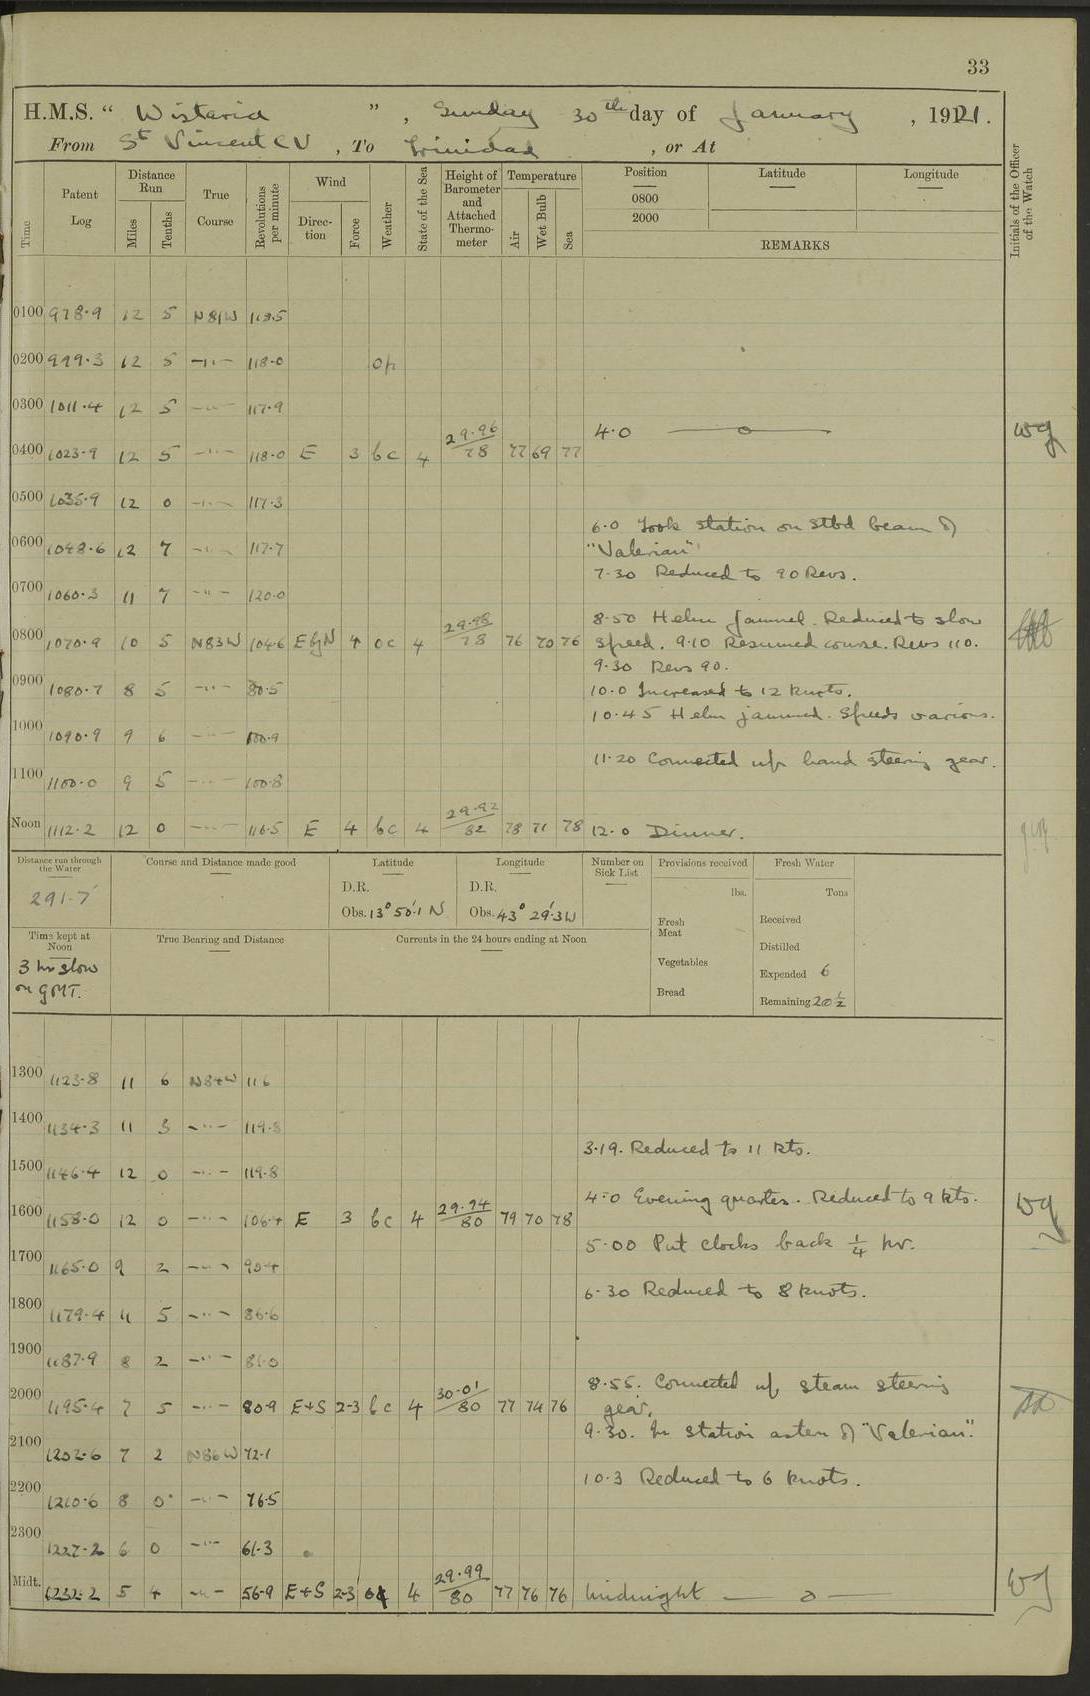 33
H.M.S. “ Wistaria ”, Sunday 30th day of January, 1921.
From St Vincent CV, To Trinidad, or At
Time
Patent Log
Distance Run
Miles
Tenths
True Course
Revolutions per minute
Wind
Direction
Force
Weather
State of the Sea
Height of Barometer and Attached Thermometer
Temperature
Air
Wet Bulb
Sea
Position
0800
2000
Latitude
Longitude
REMARKS
Initials of the Officer of the Watch
0100 978.9 12 5 N81W 118.5
0200 999.3 12 5 –"– 118.0 op
0300 1011.4 12 5 –"– 117.9
4.0
0400 1023.9 12 5 –"– 118.0 E 3 bc 4 29.96/78 77 69 77
0500 1035.9 12 0 –"– 117.3
6.0 Took station on stbd beam of
0600 1048.6 12 7 –"– 117.7
"Valerian"
7.30 Reduced to 90 Revs.
0700 1060.3 11 7 –"– 120.0
8.50 Helm jammed. Reduced to slow
0800 1070.9 10 5 N83W 104.6 EbyN 4 oc 4 29.98/78 76 70 76
speed. 9.10 Resumed course. Revs 110.
9.30 Revs 90.
0900 1080.7 8 5 –"– 80.5
10.0 Increased to 12 knots.
10.45 Helm jammed. Speeds various.
1000 1090.9 9 6 –"– 100.9
11.20 Connected up hand steering gear.
1100 1100.0 9 5 –"– 100.8
Noon 1112.2 12 0 –"– 116.5 E 4 bc 4 29.92/82 78 71 78 12.0 Dinner.
Distance run through the Water
291.7
Course and Distance made good
Latitude
D.R.
Obs. 13° 50'.1 N
Longitude
D.R.
Obs. 43° 29'.3 W
Number on Sick List
Provisions received
lbs.
Fresh Meat
Vegetables
Bread
Fresh Water
Tons
Received
Distilled
Expended 6
Remaining 20½
Time kept at Noon
3 hrs slow
on GMT.
True Bearing and Distance
Currents in the 24 hours ending at Noon
1300 1123.8 11 6 N84W 116
1400 1134.3 11 3 –"– 119.8
3.19. Reduced to 11 kts.
1500 1146.4 12 0 –"– 119.8
4.0 Evening quarters. Reduced to 9 kts.
1600 1158.0 12 0 –"– 106.4 E 3 bc 4 29.94/80 79 70 78
5.00 Put clocks back ¼ hr.
1700 1165.0 9 2 –"– 90.4
6.30 Reduced to 8 knots.
1800 1179.4 11 5 –"– 86.6
1900 1187.9 8 2 –"– 81.0
8.55. Connected up steam steering
2000 1195.4 7 5 –"– 80.9 E+S 2-3 bc 4 30.01/80 77 74 76
gear.
9.30. In station astern of "Valerian".
2100 1202.6 7 2 N86W 72.1
10.3 Reduced to 6 knots.
2200 1210.6 8 0 –"– 76.5
2300 1227.2 6 0 –"– 61.3
Midt. 1232.2 5 4 –"– 56.9 E+S 2-3 4 29.99/80 77 76 76 Midnight